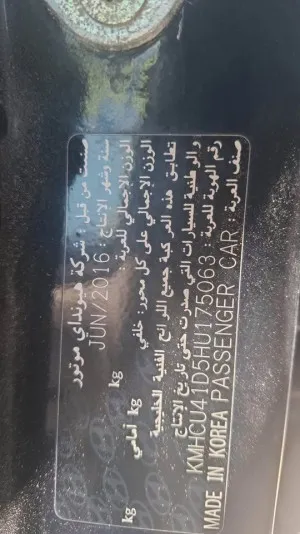 صنعت من قبل : شركة هيونداي موتور
سنة وشهر الانتاج : JUN/2016
الوزن الإجمالي للعربة : kg
الوزن الإجمالي على كل محور: خلفي kg أمامي kg
تطابق هذه المركبة جميع اللوائح الفنية الخليجية
والوطنية للسيارات التي صدرت حتى تاريخ الانتاج
رقم الهوية للعربة : KMHCU41D5HU175063
صنف العربة : PASSENGER CAR
MADE IN KOREA